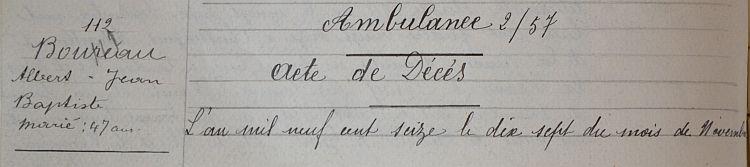 112
Boureau
Albert - Jean
Baptiste
marié : 47 ans.
Ambulance 2/57
Acte de Décés
L'an mil neuf cent seize le dix sept du mois de Novembre